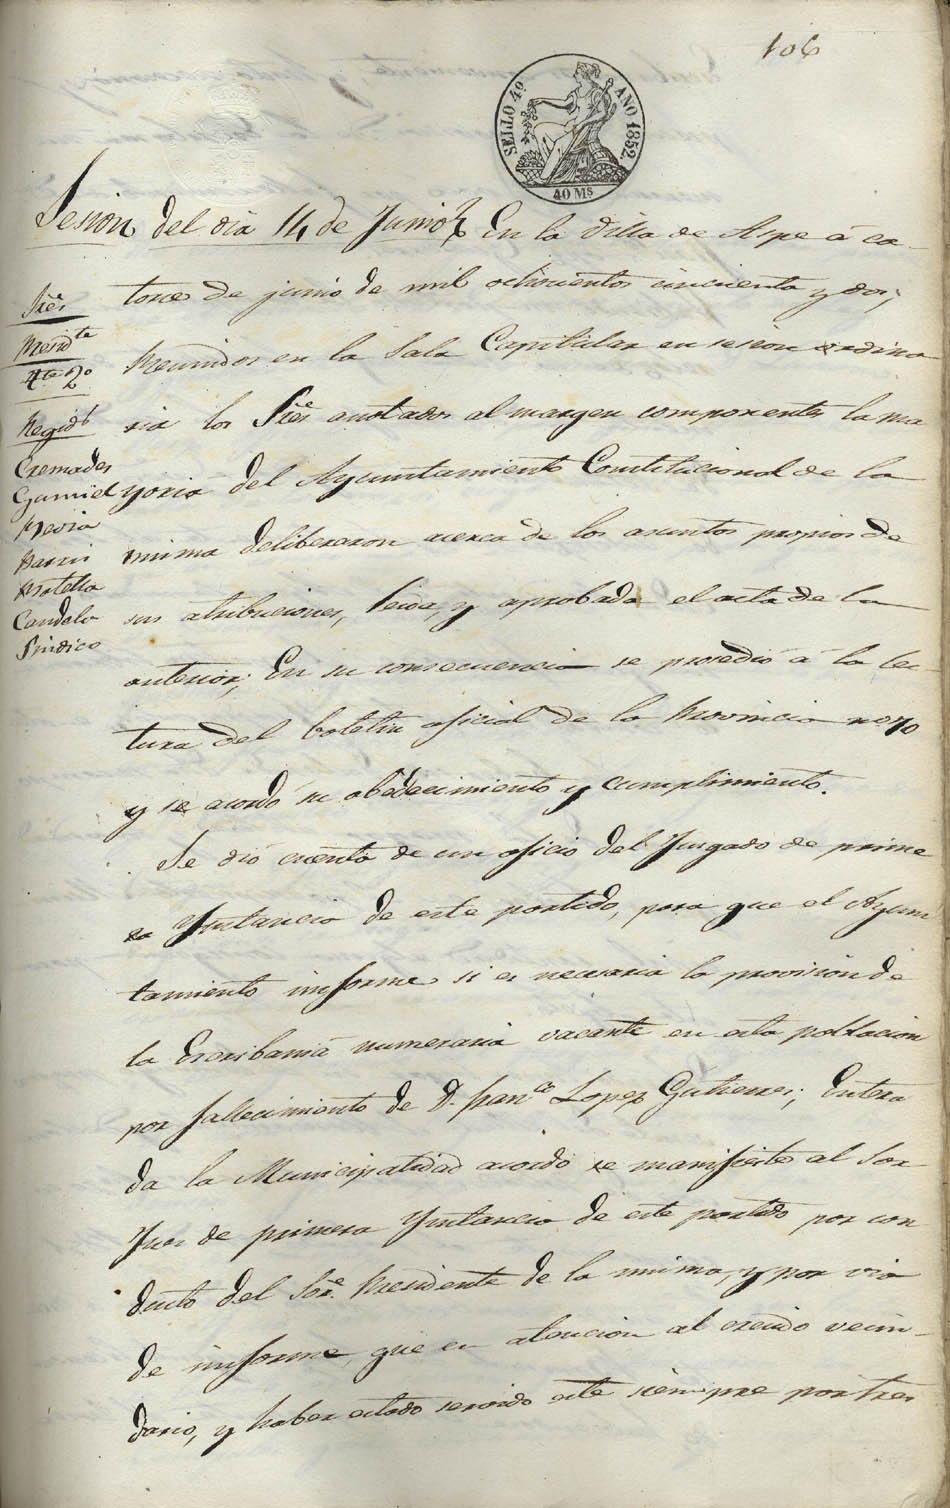 106
SELLO 4º AÑO 1852.
40 Ms
Sesion del dia 14 de Junio En la Villa de Aspe á ca-
torce de junio de mil ochocientos cincuenta y dos;
Reunidos en la Sala Capitular en sesion ordina
ria los Sres anotados al margen componentes la ma
yoria del Ayuntamiento Constitucional de la
misma deliberaron acerca de los asuntos propios de
sus atribuciones, leida, y aprobada el acta de la
anterior; En su consecuencia se procedió á la lec-
tura del boletin oficial de la Provincia nº 70
y se acordó su obedecimiento y cumplimiento.
Se dió cuenta de un oficio del Juzgado de prime
ra Ynstancia de este partido, para que el Ayun
tamiento informe si es necesaria la provision de
la Escribania numeraria vacante en esta poblacion
por fallecimiento de D. Franco Lopez Gutierres; Entera
da la Municipalidad acordó se manifieste al Sor
Juez de primera Ynstancia de este partido por con
ducto del Sor Presidente de la misma, y por via
de informe, que en atencion al crecido vecin-
dario, y haber estado servido este siempre por tres
Sres
Presidte
Tte 2º
Regids
Cremades
Gumiel
Mevia
Pavia
Botella
Candela
Sindico